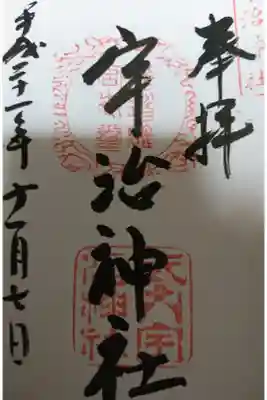 奉拝
宇治神社
平成二十一年十一月七日